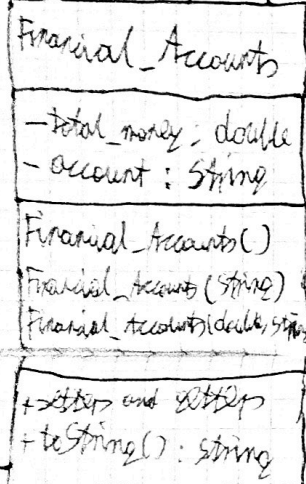 Financial_Accounts
- total_money : double
- account : String
Financial_Accounts()
Financial_Accounts(String)
Financial_Accounts(double, string
+ setters and getters
+ toString() : string